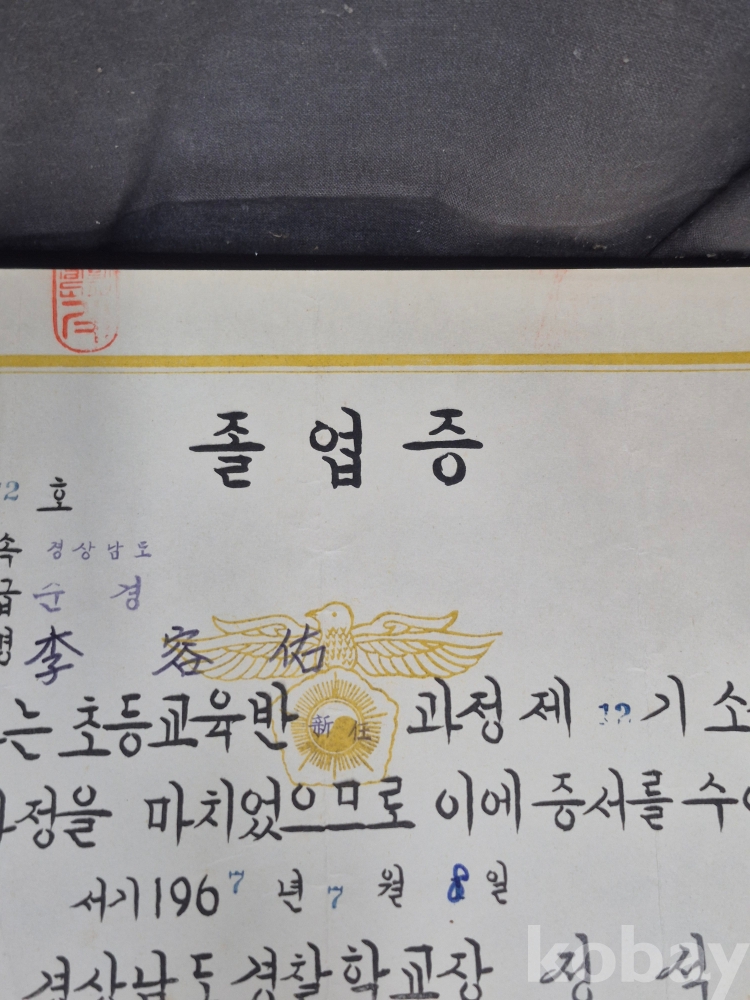 졸업증
12 호
속 경상남도
급 순경
명 李容佑
는 초등교육반 新任 과정 제 12 기 소
과정을 마치었으므로 이에 증서를 수
서기 1967 년 7 월 8 일
경상남도경찰학교장
kobay